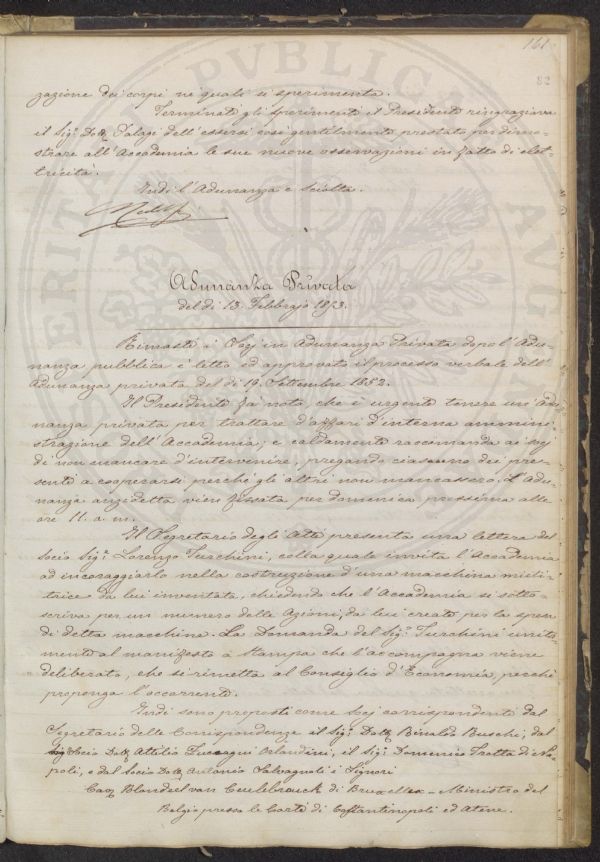 161
82
zazione dei corpi ne quali si sperimenta.
Terminati gli sperimenti il Presidente ringraziava
il Sig.r Dott. d'alagi dell'essersi così gentilmente prestato per dimo-
strare all'Accademia le sue nuove osservazioni in fatto di elet-
tricità.
Indi l'Adunanza è sciolta.
Adunanza Privata
del dì 13. Febbrajo 1853.
Rimasti i Socj in Adunanza Privata dopo l'Adu-
nanza pubblica è letto ed approvato il processo verbale dell'
Adunanza privata del dì 19. Settembre 1852.
Il Presidente fa noto, che è urgente tenere un'Adu-
nanza privata per trattare d'affari d'interna ammini-
strazione dell'Accademia; e caldamente raccomanda ai Socj
di non mancare d'intervenire, pregando ciascuno dei pre-
senti a cooperarsi perchè gli altri non mancassero. L'Adu-
nanza anzidetta viene fissata per domenica prossima alle
ore 11. a. m.
Il Segretario degli Atti presenta una lettera del
Socio Sig.r Lorenzo Turchini, colla quale invita l'Accademia
ad incoraggiarlo nella costruzione d'una macchina mieti-
trice da lui inventata, chiedendo che l'Accademia si sotto-
scriva per un numero delle Azioni, da lui create per la spesa
di detta macchina. La domanda del Sig.r Turchini unita-
mente al manifesto a stampa che l'accompagna viene
deliberato, che si rimetta al Consiglio d'Economia, perchè
proponga l'occorrente.
Indi sono proposti come Socj corrispondenti dal
Segretario delle Corrispondenze il Sig.r Dott. Rinaldo Buschi; dal
Socio Dott. Attilio Zuccagni Orlandini, il Sig.r Domenico Tratta di Na-
poli, e dal Socio Dott. Antonio Salvagnoli i Signori
Cav. Blondeel van Ceulebrouck di Bruxelles - Ministro del
Belgio presso le Corti di Costantinopoli ed Atene.